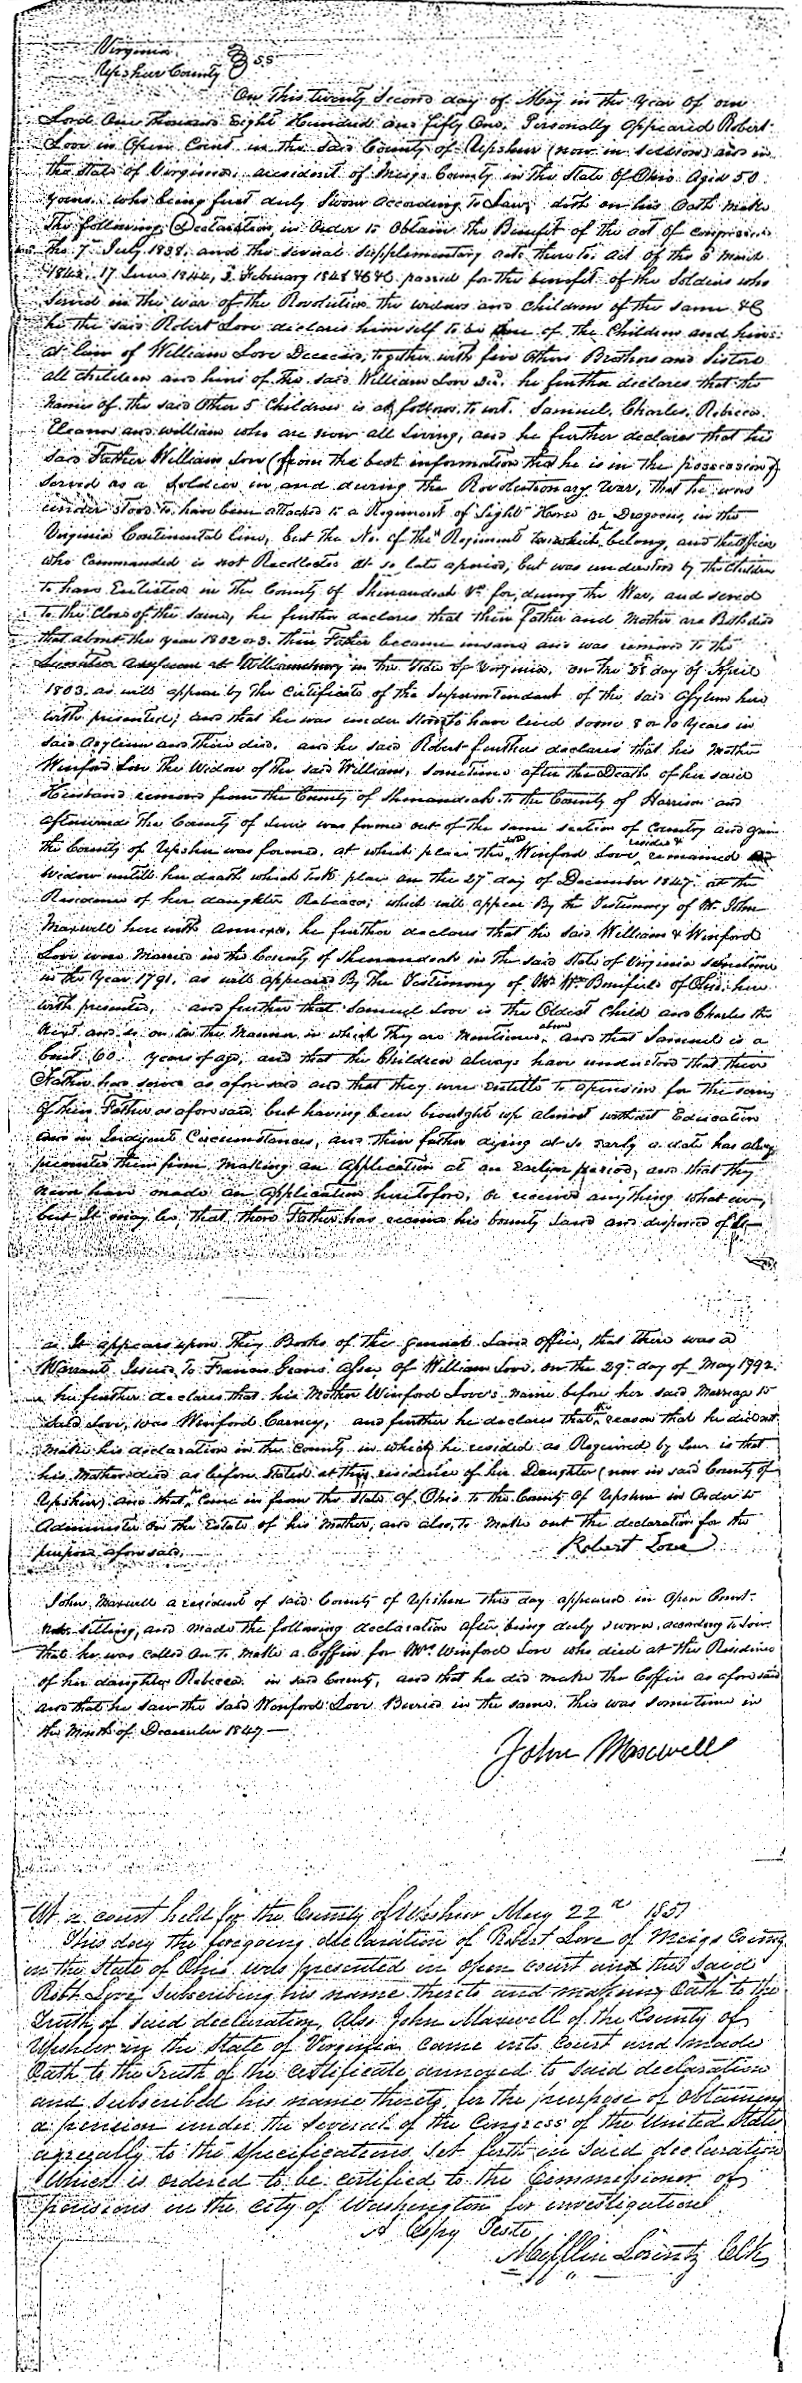 Virginia
Upshur County } SS
On this twenty Second day of May in the Year of our
Lord One thousand Eight Hundred and fifty One, Personally appeared Robert
Love in Open Court in the said County of Upshur (now in session) and in
the State of Virginia, a resident of Meigs County in the State of Ohio Aged 50
Years. who being first duly Sworn According to Law, doth on his Oath make
the following Declaration in Order to Obtain the Benefit of the act of congress
the 7th July 1838, and the several supplementary acts thereto. act of the 3 March
1843, 17 June 1844, 2 February 1848 &c &c passed for the benefit of the Soldiers who
Served in the war of the Revolution the widows and children of the same &c
he the said Robert Love declares himself to be one of the Children and heirs
at law of William Love Deceased, together with five Others Brothers and Sisters
all children and heirs of the said William Love Decd. he further declares that the
names of the said Other 5 Children is as follows, to wit. Samuel, Charles, Rebecca,
Eleanor and William who are now all living, and he further declares that his
said Father William Love (from the best information that he is in the possession of)
served as a Soldier in and during the Revolutionary War, that he was
understood to have been attached to a Regiment of Light Horse or Dragoons, in the
Virginia Continental line, but the No. of the Regiment to which belong, and the officer
who Commanded is not Recollected at so late a period, but was understood by the Children
to have Enlisted in the County of Shenandoah Va for, during the War, and served
to the Close of the same, he further declares that their Father and Mother are Both died
that about the year 1802 or 3. their Father became insane and was removed to the
Lunatic Assylum at Williamsburg in the State of Virginia. on the day of April
1803. as will appear by the Certificate of the Superintendant of the said Asylum here
with presented; and that he was under stood to have lived some 8 or 10 Years in
said Asylum and there died. and he said Robert further declares that his Mother
Winford Love the Widow of the said William, sometime after the Death of her said
Husband removed from the County of Shenandoah to the County of Harrison and
afterwards the County of Lewis was formed out of the same section of Country and again
the County of Upshur was formed, at which place the said Winford Love resided & remained
Widow untill her death which took place on the 27 day of December 1847 at the
Residence of her daughter Rebecca; which will appear By the Testimony of Mr. John
Maxwell here with annexed. he further declares that the said William & Winford
Love were Married in the County of Shenandoah in the said State of Virginia sometime
in the Year 1791. as will appear By the Testimony of Mr. Wm Bonifield of Ohio here
with presented, and further that Samuel Love is the Oldest Child and Charles the
Next and so on in the Manner in which they are mentioned above and that Samuel is a
bout 60 years of age, and that the Children always have understood that their
Father has served as aforesaid and that they were entitle to a pension for the services
of their Father as aforesaid. but having been brought up almost without Education
and in Indigent Circumstances, and their father dying at so early a date has always
prevented them from making an application at an earlyer period, and that they
never have made an application heretofore, or received anything what ever,
but It may be, that there Father has received his bounty Land and disposed of it
as It appears upon they Books of the General Land office, that there was a
Warrant Issued to Francis Graves Assee of William Love, on the 29th day of May 1792.
he further declares that his Mother Winford Love's name before her said Marriage to
said Love, was Winford Carney, and further he declares that the reason that he did not
make his declaration in the County in which he resided as Required by Law is that
his Mother died as before stated at the residence of her Daughter (now in said County of
Upshur) and that he Come in from the State of Ohio to the County of Upshur in Order to
Administer on the Estate of his Mother, and also, to make out the declaration for the
purpose aforesaid. Robert Love
John Maxwell a resident of said County of Upshur this day appeared in Open Court
now sitting, and made the following declaration after being duly sworn according to Law.
that he was called on to make a Coffin for Mrs. Winford Love who died at the Residence
of her daughter Rebecca in said County, and that he did make the Coffin as aforesaid
and that he saw the said Winford Love Buried in the same. this was sometime in
the Month of December 1847.—
John Maxwell
At a court held for the County of Upshur May 22nd 1851
This day the foregoing declaration of Robert Love of Meigs County
in the State of Ohio was presented in open court and the said
Robt. Love subscribing his name thereto and making Oath to the
Truth of said declaration, Also John Maxwell of the County of
Upshur in the State of Virginia came into court and made
Oath to the Truth of the certificate annexed to said declaration
and subscribed his name thereto for the purpose of obtaining
a pension under the several of the Congress of the United States
agreeably to the specifications set forth in said declaration
Which is ordered to be certified to the Commissioner of
pensions in the city of Washington for investigation
A Copy Teste
Mifflin Lorentz Clk